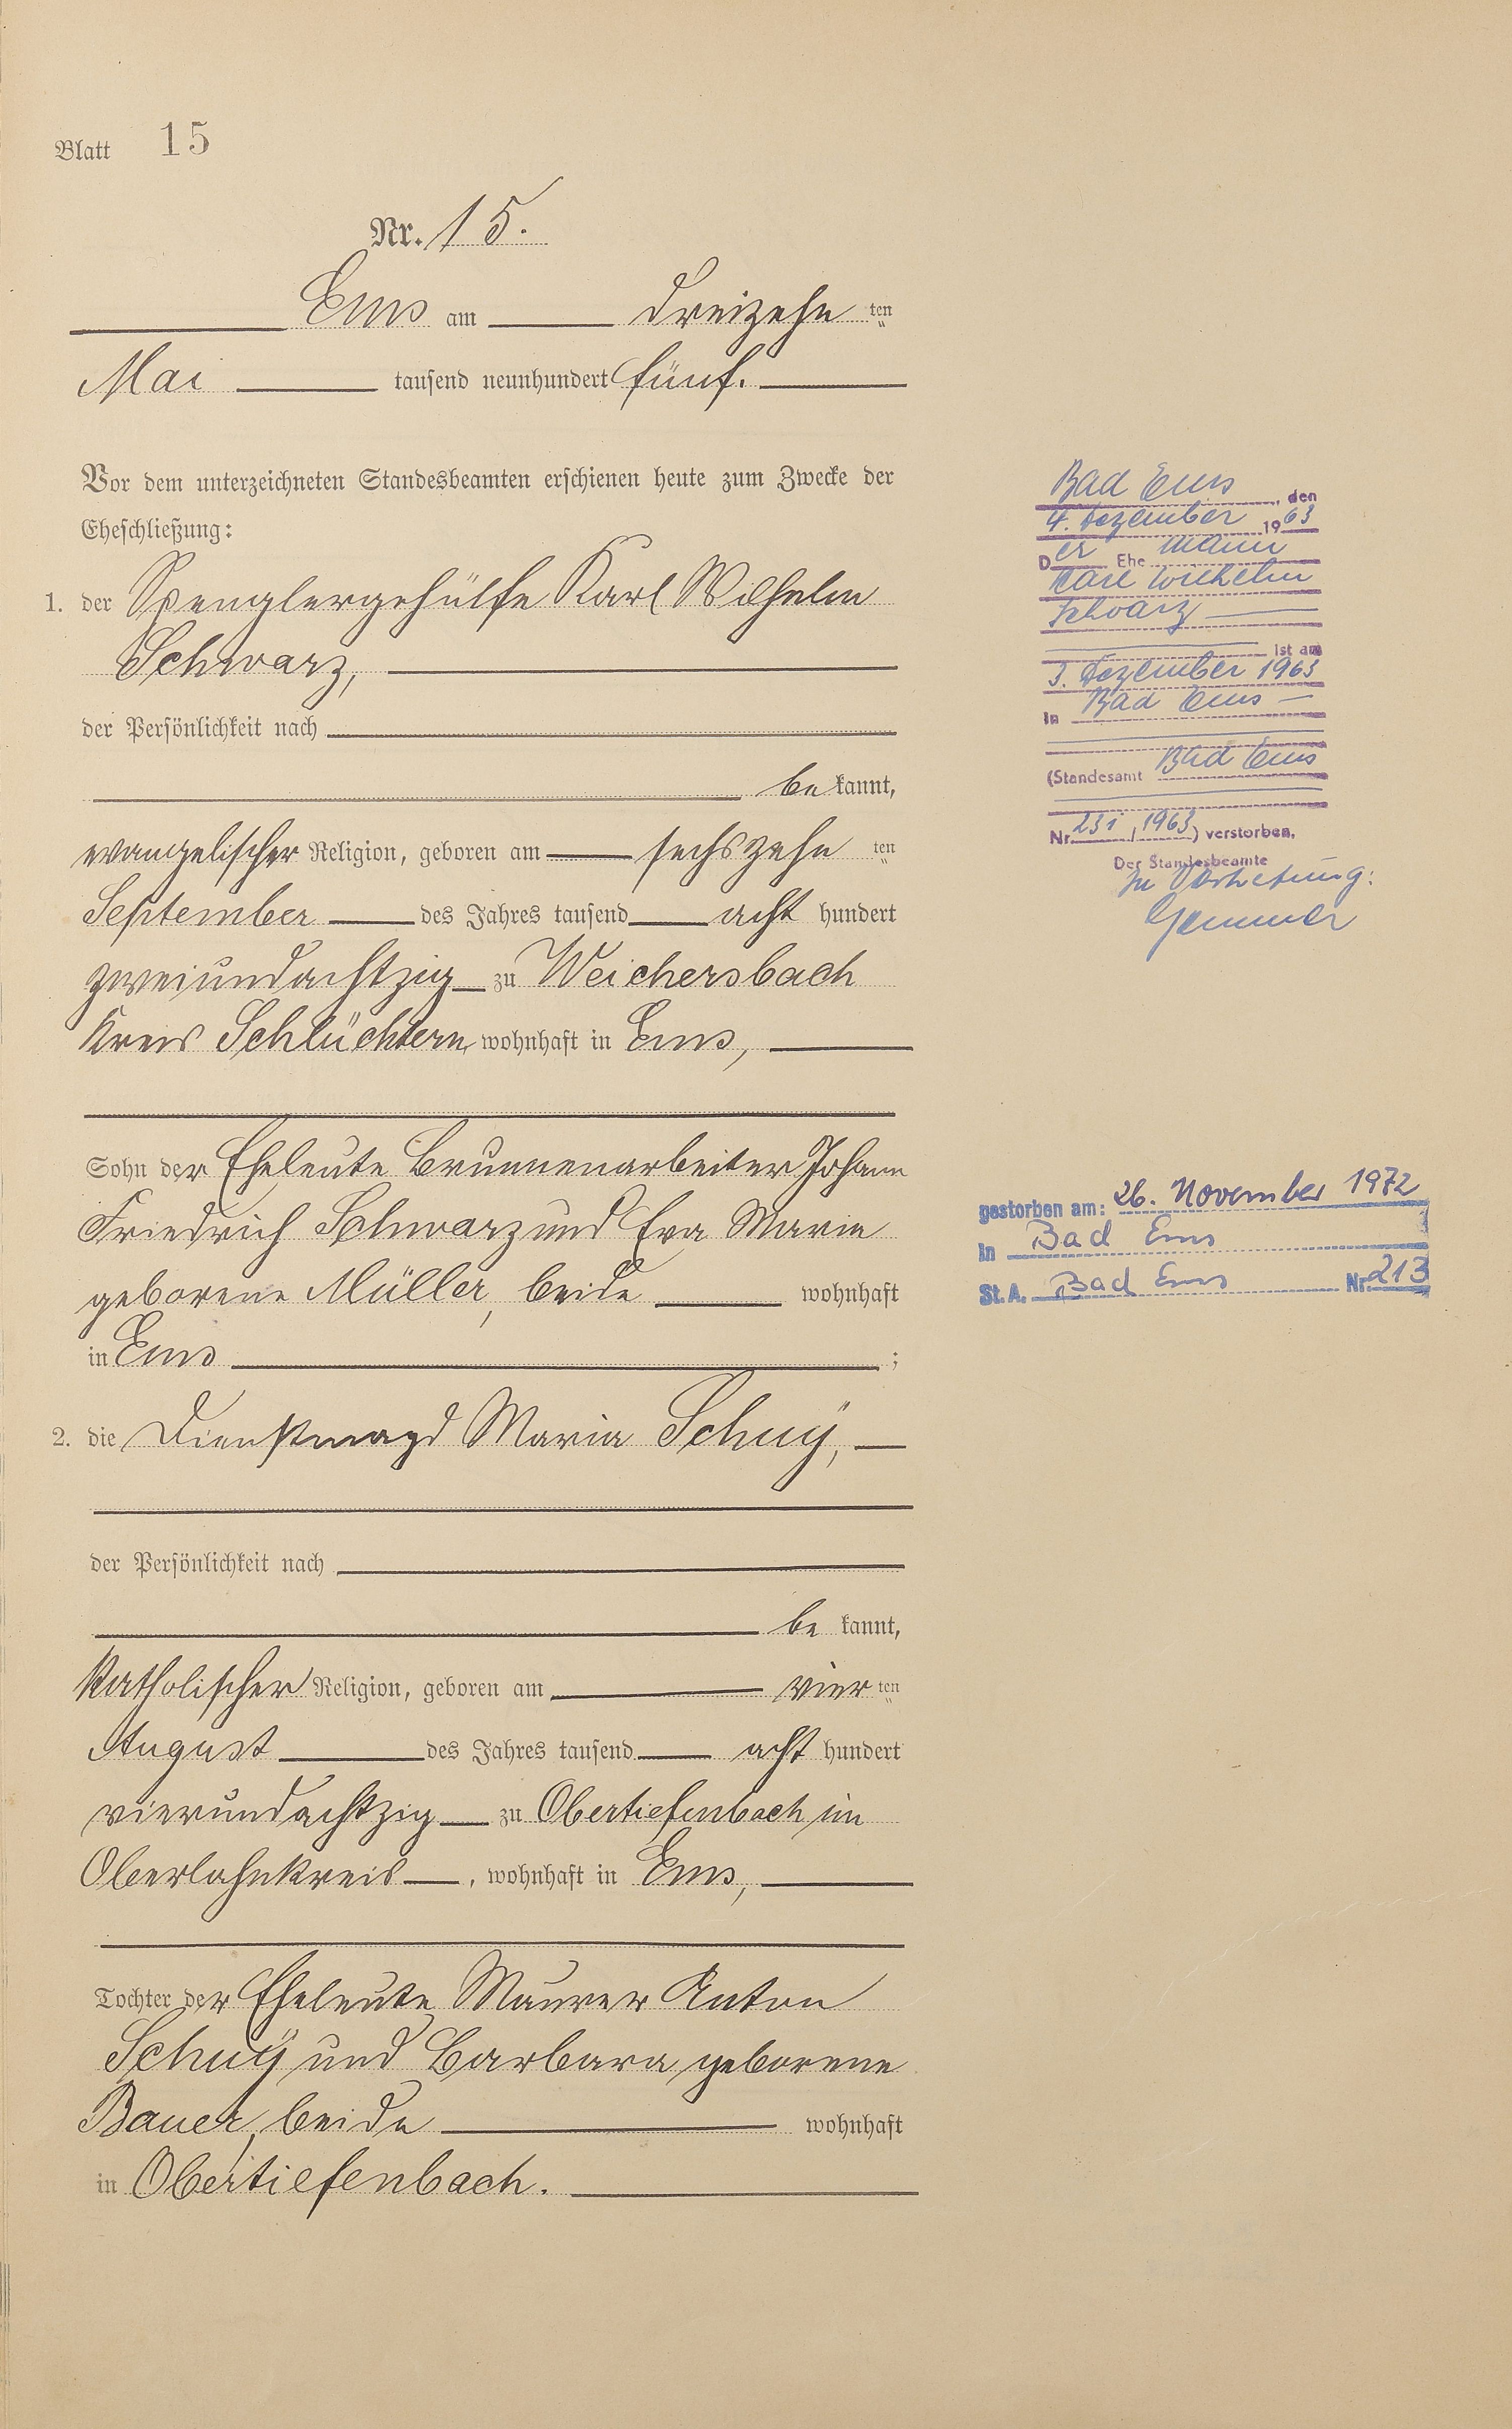 Blatt 15
Nr. 15.
Ems am dreizehn ten
Mai tausend neunhundert fünf.
Vor dem unterzeichneten Standesbeamten erschienen heute zum Zwecke der
Eheschließung:
1. der Spenglergehülfe Karl Wilhelm
Schwarz,
der Persönlichkeit nach
be kannt,
evangelischer Religion, geboren am sechszehn ten
September des Jahres tausend acht hundert
zweiundachtzig zu Weichersbach
Kreis Schlüchtern, wohnhaft in Ems,
Sohn der Eheleute Brunnenarbeiter Johann
Friedrich Schwarz und Eva Marie
geborene Müller, beide wohnhaft
in Ems ;
2. die Dienstmagd Maria Schuÿ,
der Persönlichkeit nach
be kannt,
katholischer Religion, geboren am vier ten
August des Jahres tausend acht hundert
vierundachtzig zu Obertiefenbach im
Oberlahnkreis, wohnhaft in Ems,
Tochter der Eheleute Maurer Anton
Schuÿ und Barbara geborene
Bauer, beide wohnhaft
in Obertiefenbach.
Bad Ems, den
4. Dezember 1963
Der Ehemann
Karl Wilhelm
Schwarz
ist am
3. Dezember 1963
in Bad Ems
(Standesamt Bad Ems
Nr. 231 / 1963) verstorben.
Der Standesbeamte
In Vertretung:
gestorben am: 26. November 1972
in Bad Ems
St.A. Bad Ems Nr. 213